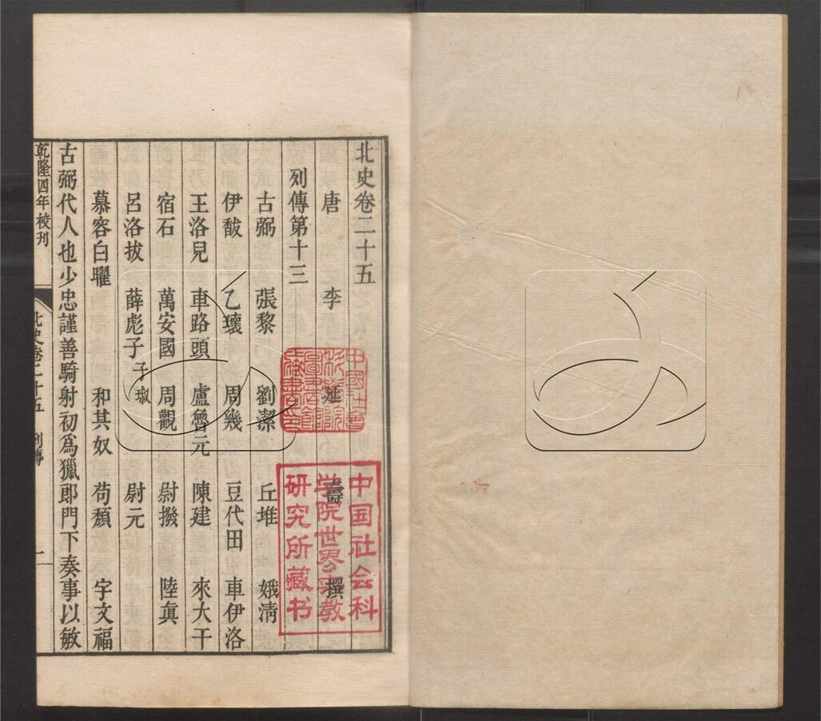 北史卷二十五
唐 李 延 壽 撰
列傳第十三
古弼 張黎 劉潔 丘堆 娥清
伊馛 乙瓌 周幾 豆代田 車伊洛
王洛兒 車路頭 盧魯元 陳建 來大干
宿石 萬安國 周觀 尉撥 陸真
呂洛拔 薛彪子 子琡 尉元
慕容白曜 和其奴 苟頹 宇文福
古弼代人也少忠謹善騎射初爲獵郎門下奏事以敏
乾隆四年校刊
北史卷二十五 列傳 一
中国社会科
学院世界宗教
研究所藏书
中國社會
科學院
圖書館